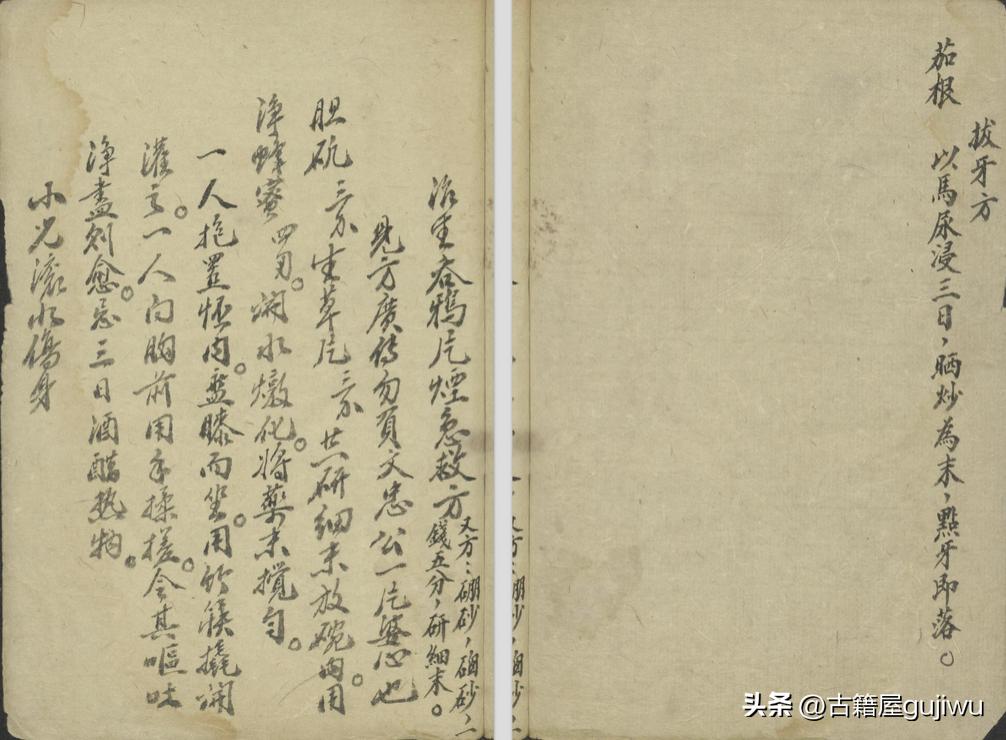 拔牙方
茄根 以馬尿浸三日，晒炒為末，點牙即落。
治生吞鴉片煙急救方
又方：硼砂，硇砂，一
錢五分，研細末。
見方廣傳勿負文忠公一片婆心也
胆矾三分生草片三分共研細末放碗內用
淨蜂蜜四兩。開水燉化。將藥末攪勻。
一人抱置怀內。盤膝而坐。用竹筷撬開
灌之。一人向胸前用手揉搓。令其嘔吐
淨盡則愈。忌三日酒醋熱物。
小兒滾水傷身
头条 @古籍屋gujiwu